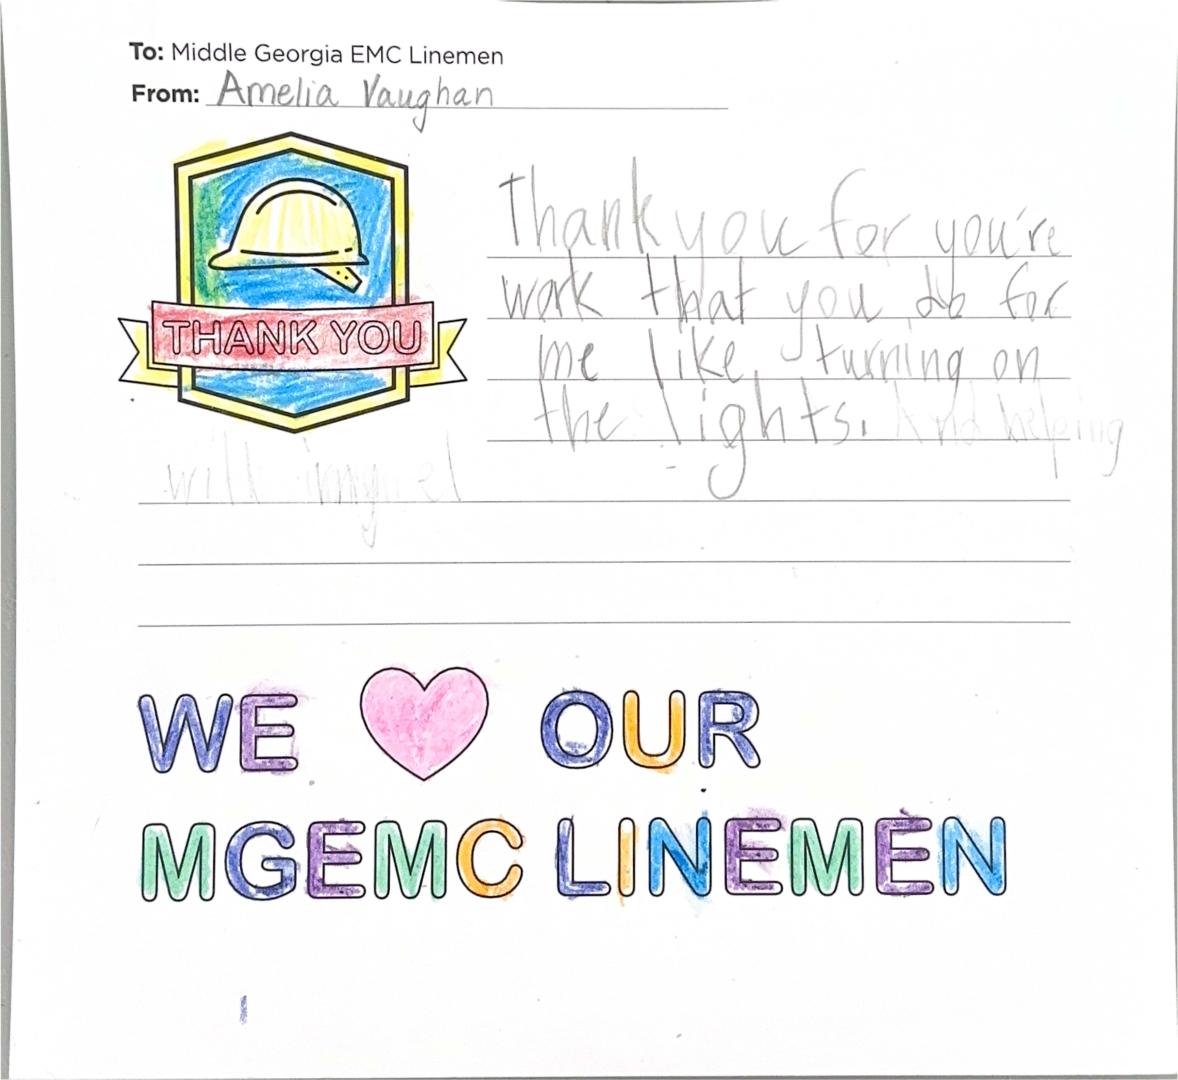 To: Middle Georgia EMC Linemen
From: Amelia Vaughan
THANK YOU
Thank you for you're
work that you do for
me like turning on
the lights. And helping
will
WE OUR
MGEMC LINEMEN